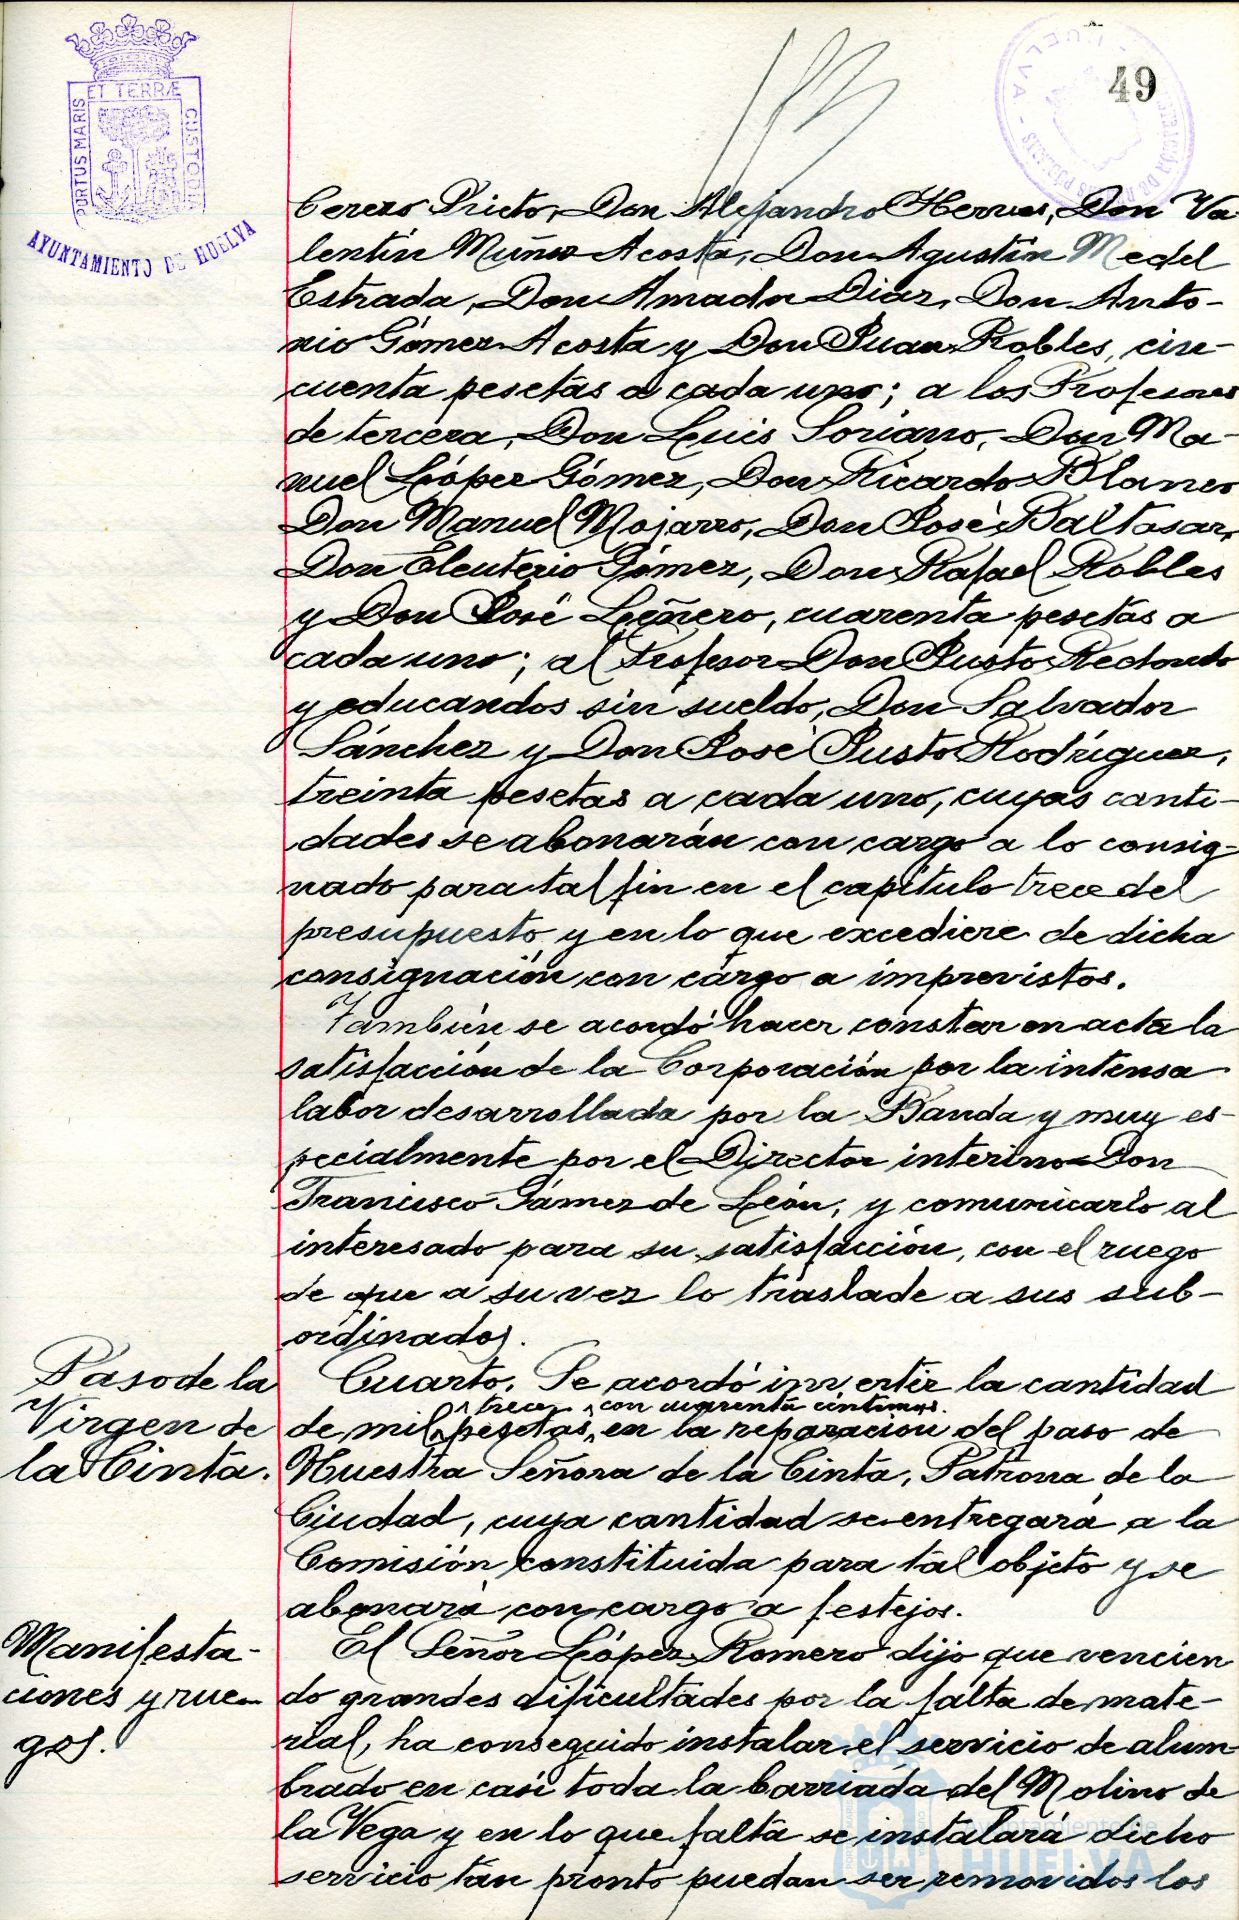 49
PORTUS MARIS ET TERRÆ CUSTODIA
AYUNTAMIENTO DE HUELVA
Cerezo Prieto, Don Alejandro Hervas, Don Va
lentín Muñoz Acosta, Don Agustín Medel
Estrada, Don Amador Diaz, Don Anto-
nio Gómez Acosta y Don Juan Robles, cin-
cuenta pesetas a cada uno; a los Profesores
de tercera, Don Luis Soriano, Don Ma-
nuel López Gómez, Don Ricardo Blanco
Don Manuel Mojarro, Don José Baltasar,
Don Eleuterio Gómez, Don Rafael Robles
y Don José Leñero, cuarenta pesetas a
cada uno; al Profesor Don Justo Redondo
y educandos sin sueldo, Don Salvador
Sánchez y Don José Justo Rodríguez,
treinta pesetas a cada uno, cuyas canti-
dades se abonarán con cargo a lo consig-
nado para tal fin en el capítulo trece del
presupuesto y en lo que excediere de dicha
consignación con cargo a imprevistos.
También se acordó hacer constar en acta la
satisfacción de la Corporación por la intensa
labor desarrollada por la Banda y muy es-
pecialmente por el Director interino Don
Francisco Gámez de León, y comunicarlo al
interesado para su satisfacción, con el ruego
de que a su vez lo traslade a sus sub-
ordinados.
Paso de la
Virgen de
la Cinta.
Cuarto. Se acordó invertir la cantidad
trece con cuarenta céntimos.
de mil pesetas, en la reparación del paso de
Nuestra Señora de la Cinta, Patrona de la
Ciudad, cuya cantidad se entregará a la
Comisión constituida para tal objeto y se
abonará con cargo a festejos.
Manifesta-
ciones y rue-
gos.
El Señor López Romero dijo que vencien
do grandes dificultades por la falta de mate-
rial, ha conseguido instalar el servicio de alum-
brado en casi toda la barriada del Molino de
la Vega y en lo que falta se instalará dicho
servicio tan pronto puedan ser removidos los
Ayuntamiento de
HUELVA